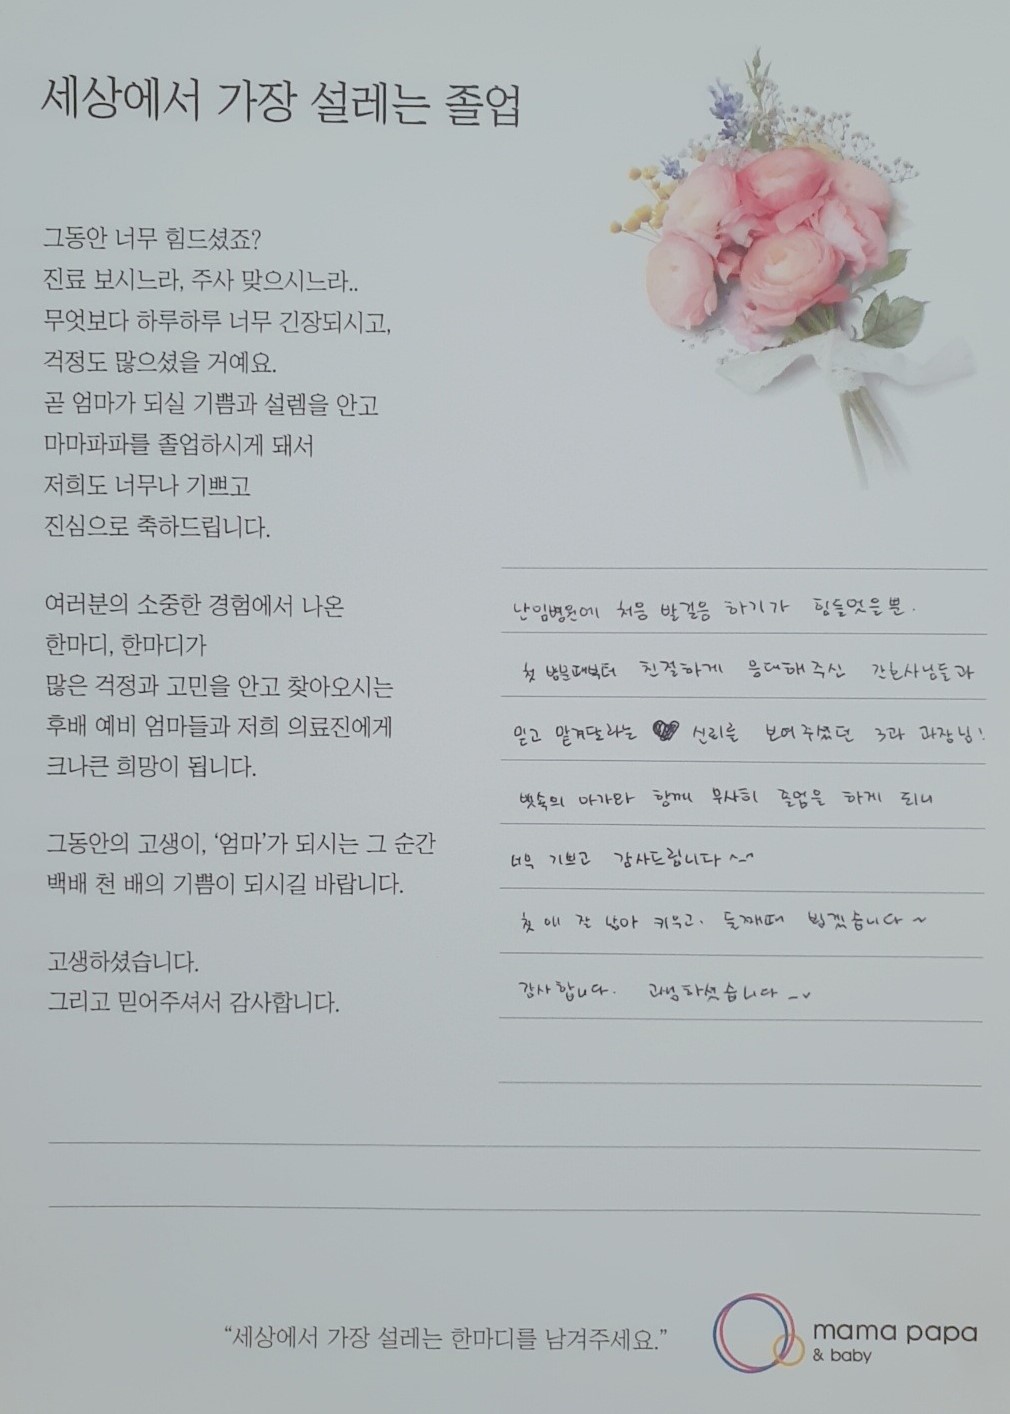 세상에서 가장 설레는 졸업
그동안 너무 힘드셨죠?
진료 보시느라, 주사 맞으시느라..
무엇보다 하루하루 너무 긴장되시고,
걱정도 많으셨을 거예요.
곧 엄마가 되실 기쁨과 설렘을 안고
마마파파를 졸업하시게 돼서
저희도 너무나 기쁘고
진심으로 축하드립니다.
여러분의 소중한 경험에서 나온
한마디, 한마디가
많은 걱정과 고민을 안고 찾아오시는
후배 예비 엄마들과 저희 의료진에게
크나큰 희망이 됩니다.
그동안의 고생이, ‘엄마’가 되시는 그 순간
백배 천 배의 기쁨이 되시길 바랍니다.
고생하셨습니다.
그리고 믿어주셔서 감사합니다.
난임병원에 처음 발걸음 하기가 힘들었을뿐.
첫 방문때부터 친절하게 응대해주신 간호사님들과
믿고 맡겨달라는 신뢰를 보여주셨던 3과 과장님!
뱃속의 아가와 함께 무사히 졸업을 하게 되니
너무 기쁘고 감사드립니다 ^-^
첫 애 잘 낳아 키우고. 둘째때 뵙겠습니다 ~
감사합니다. 고생하셨습니다
“세상에서 가장 설레는 한마디를 남겨주세요.”
mama papa
& baby